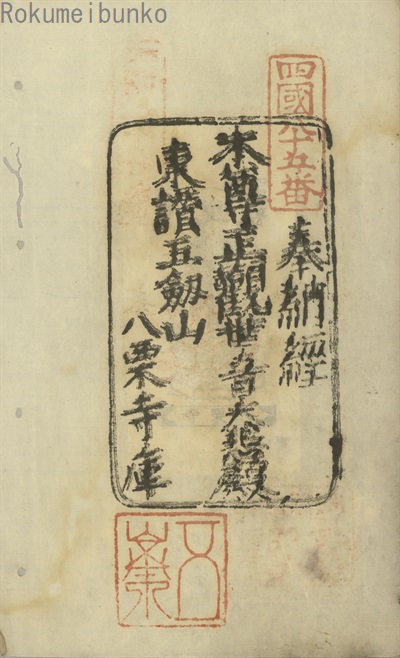 Rokumeibunko
四國八十五番
奉納經
本尊正觀世音大悲殿
東讃五劔山
八栗寺庫